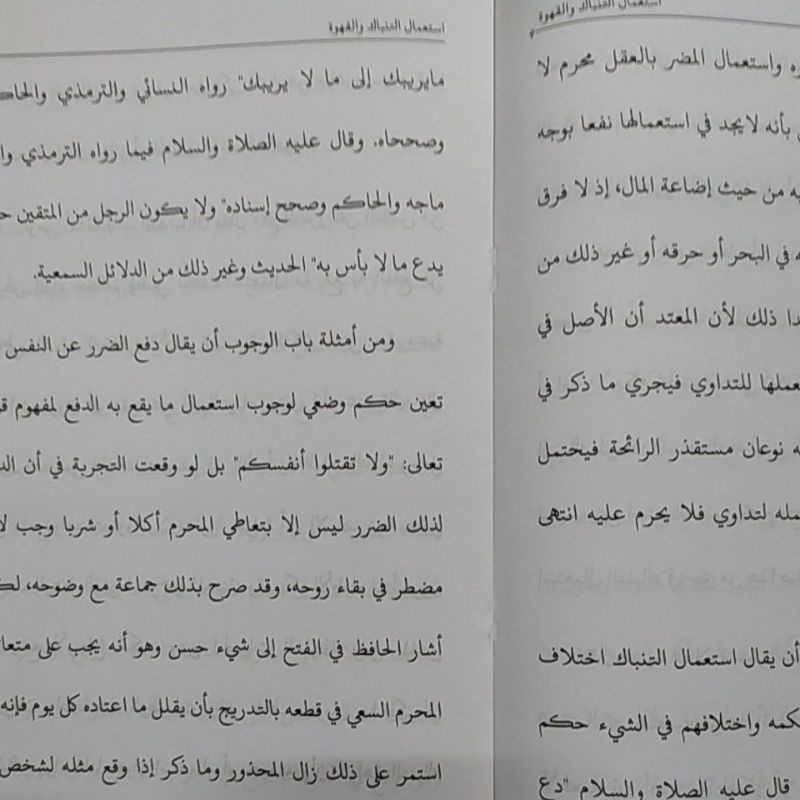 استعمال التنباك والقهوة
ره واستعمال المضر بالعقل محرم لا
بأنه لايجد في استعمالها نفعا بوجه
به من حيث إضاعة المال، إذ لا فرق
في البحر أو حرقه أو غير ذلك من
ذلك لأن المعتد أن الأصل في
للتداوي فيجري ما ذكر في
نوعان مستقذر الرائحة فيحتمل
لتداوي فلا يحرم عليه انتهى
أن يقال استعمال التنباك اختلاف
واختلافهم في الشيء حكم
قال عليه الصلاة والسلام "دع
استعمال التنباك والقهوة
مايريبك إلى ما لا يريبك" رواه النسائي والترمذي والحاك
وصححاه. وقال عليه الصلاة والسلام فيما رواه الترمذي وا
ماجه والحاكم وصحح إسناده" ولا يكون الرجل من المتقين ح
يدع ما لا بأس به" الحديث وغير ذلك من الدلائل السمعية.
ومن أمثلة باب الوجوب أن يقال دفع الضرر عن النفس
تعين حكم وضعي لوجوب استعمال ما يقع به الدفع لمفهوم ق
تعالى: "ولا تقتلوا أنفسكم" بل لو وقعت التجربة في أن الد
لذلك الضرر ليس إلا بتعاطي المحرم أكلا أو شربا وجب لا
مضطر في بقاء روحه، وقد صرح بذلك جماعة مع وضوحه، لك
أشار الحافظ في الفتح إلى شيء حسن وهو أنه يجب على متعا
المحرم السعي في قطعه بالتدريج بأن يقلل ما اعتاده كل يوم فإنه
استمر على ذلك زال المحذور وما ذكر إذا وقع مثله لشخص